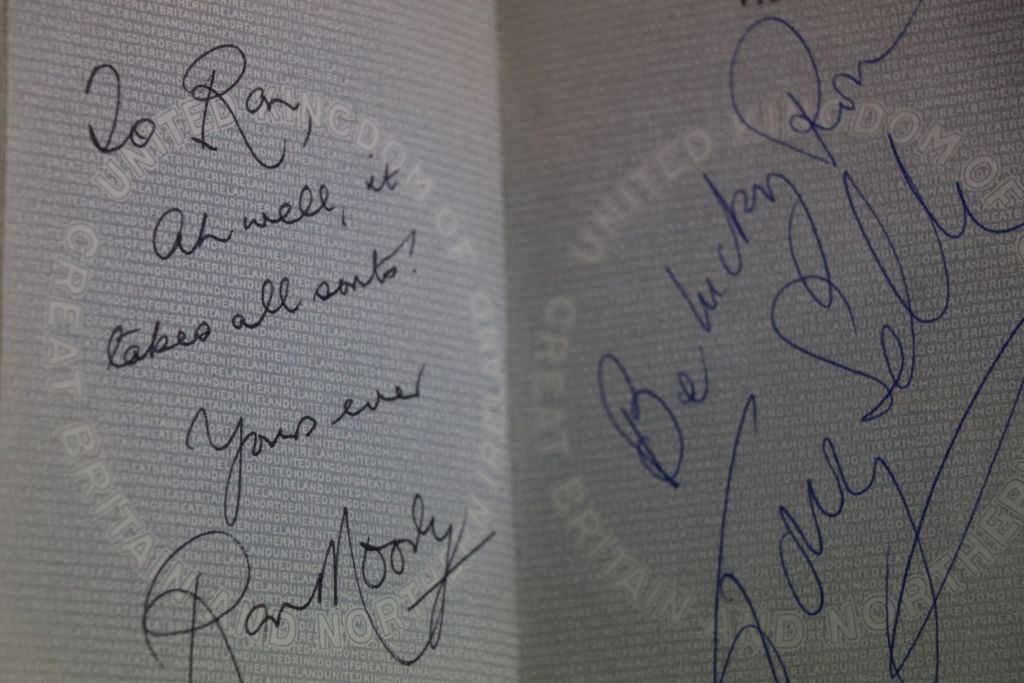 To Ron,
Ah well, it
takes all sorts!
Yours ever
Ron Moody
Be lucky Ron
UNITED KINGDOM OF
GREAT BRITAIN
AND NORTHERN IRELAND
UNITED KINGDOM OF
GREAT BRITAIN
AND NORTHER